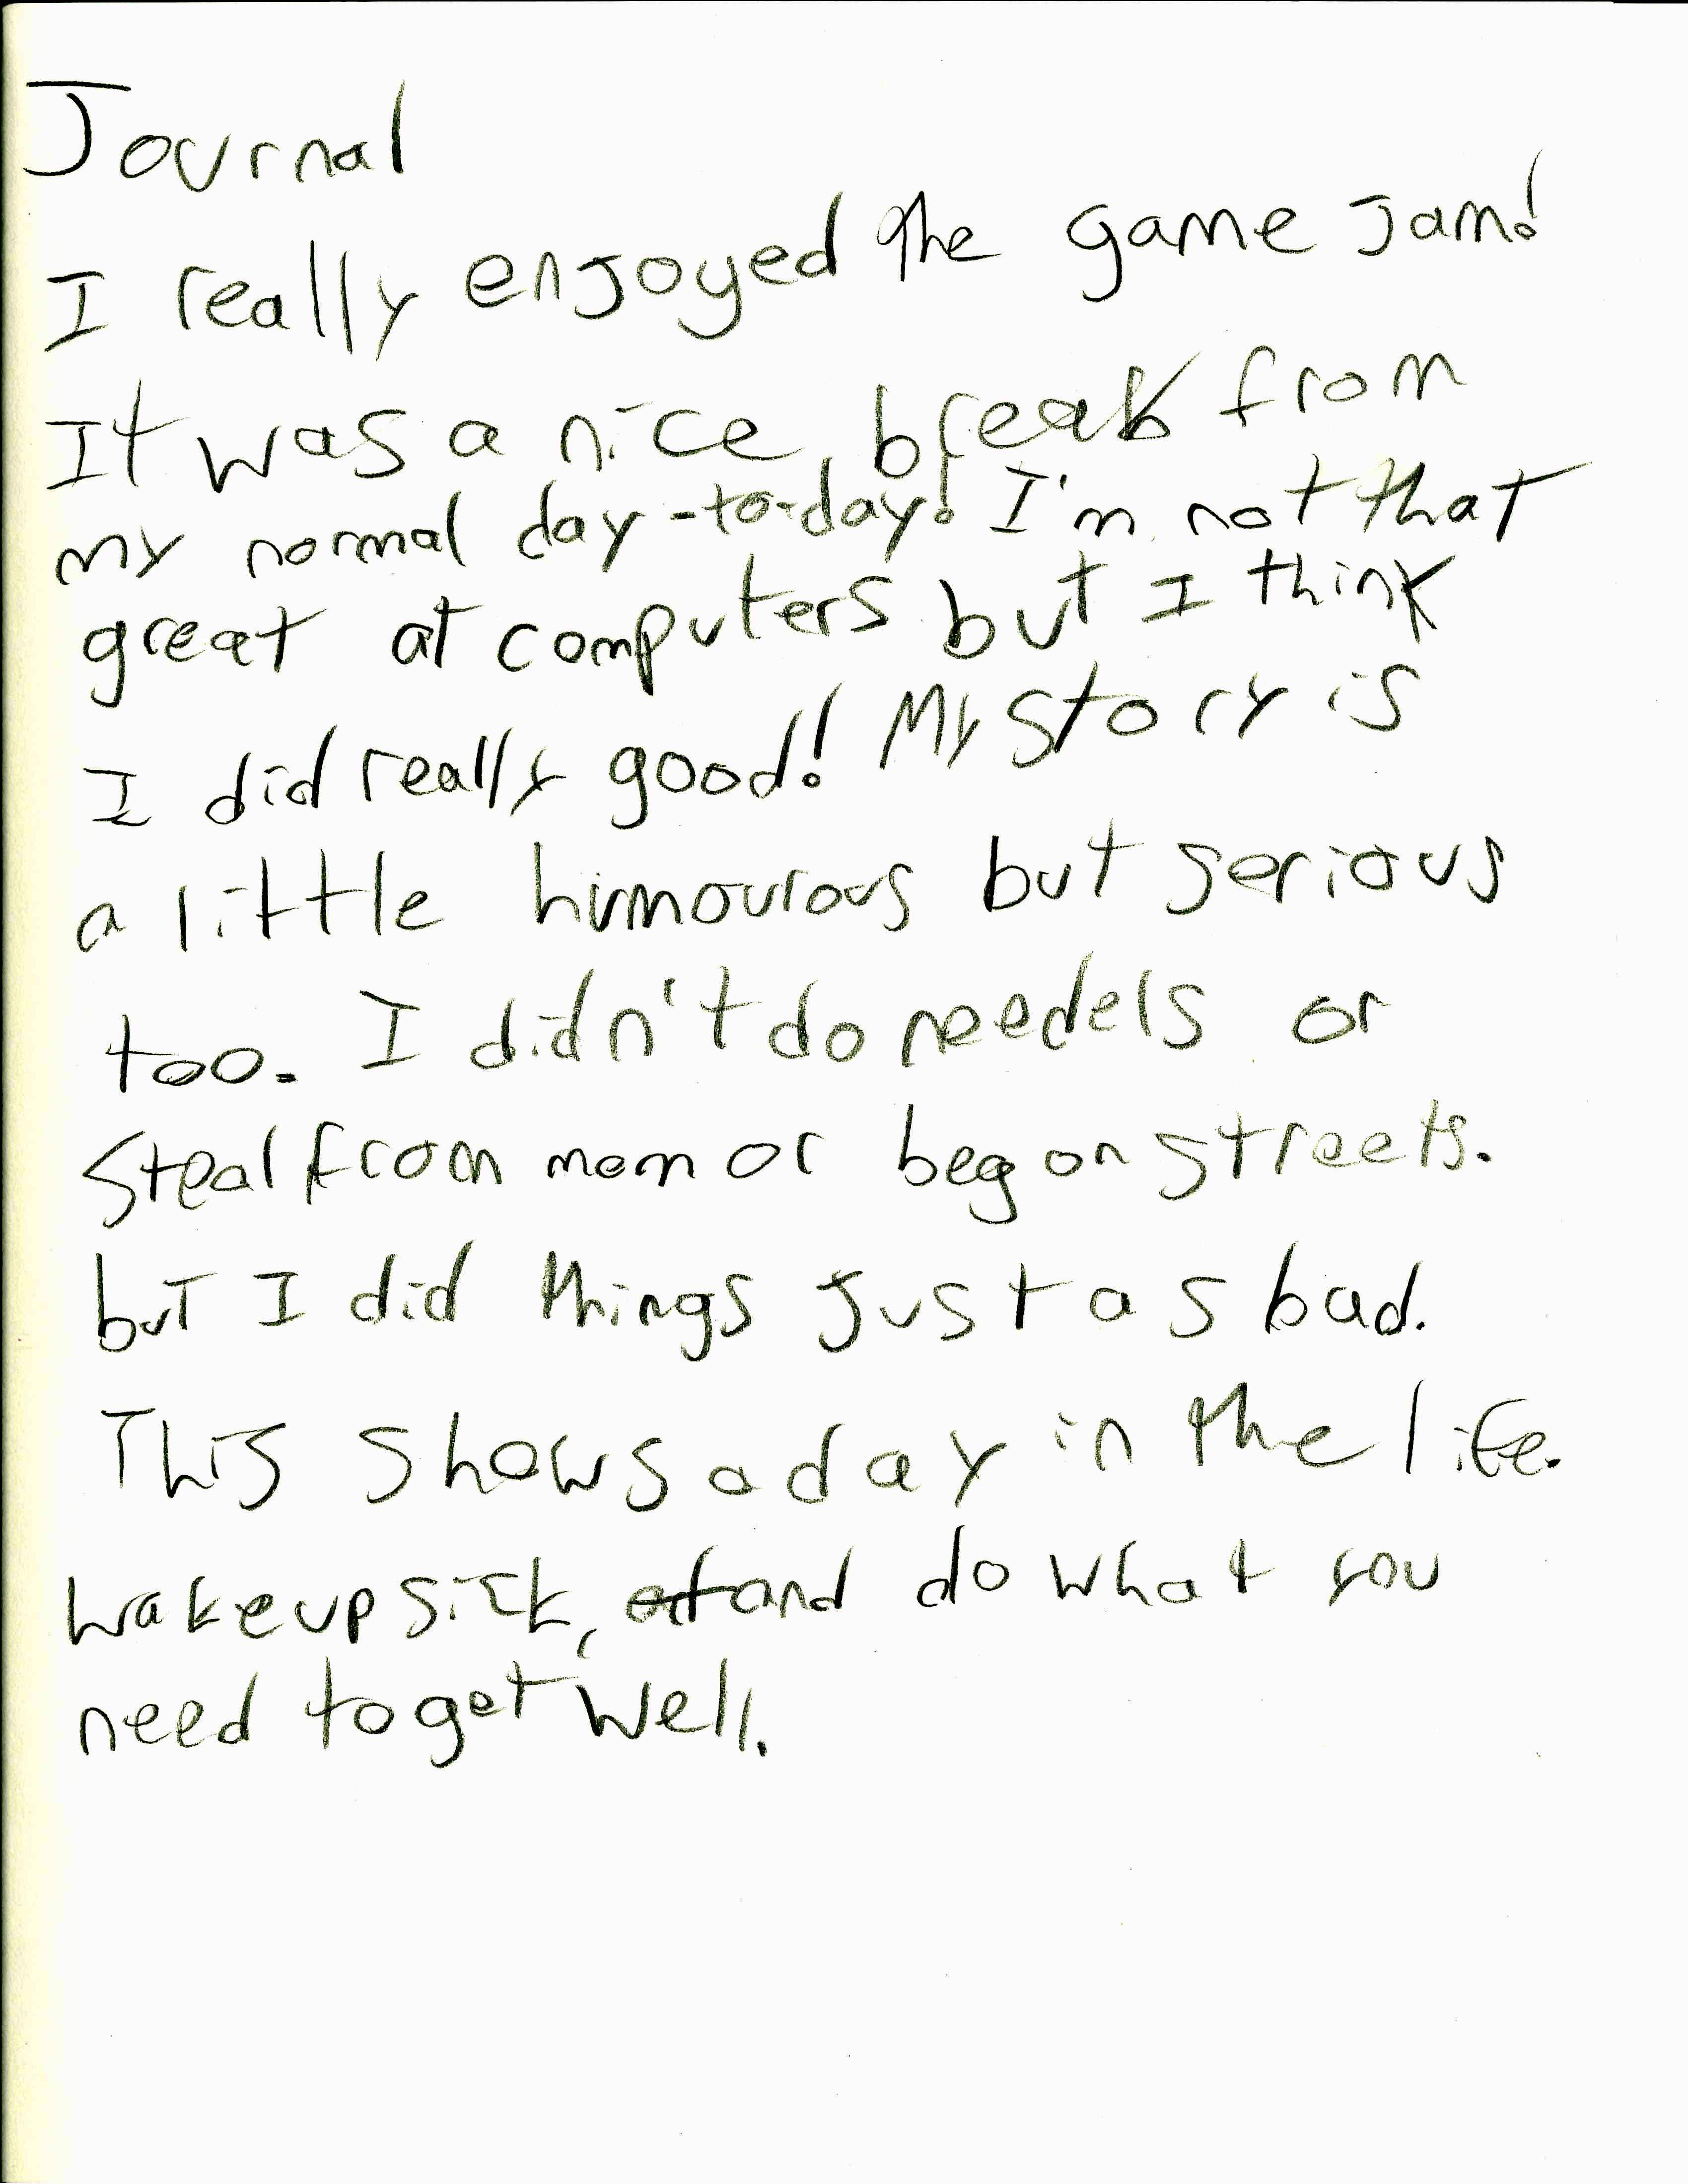 Journal
I really enjoyed the game jam!
It was a nice break from
my normal day-to-day! I'm not that
great at computers but I think
I did really good! My story is
a little humourous but serious
too. I didn't do needels or
steal from mom or beg on streets.
but I did things just as bad.
This shows a day in the life.
wake up sick, and do what you
need to get well.